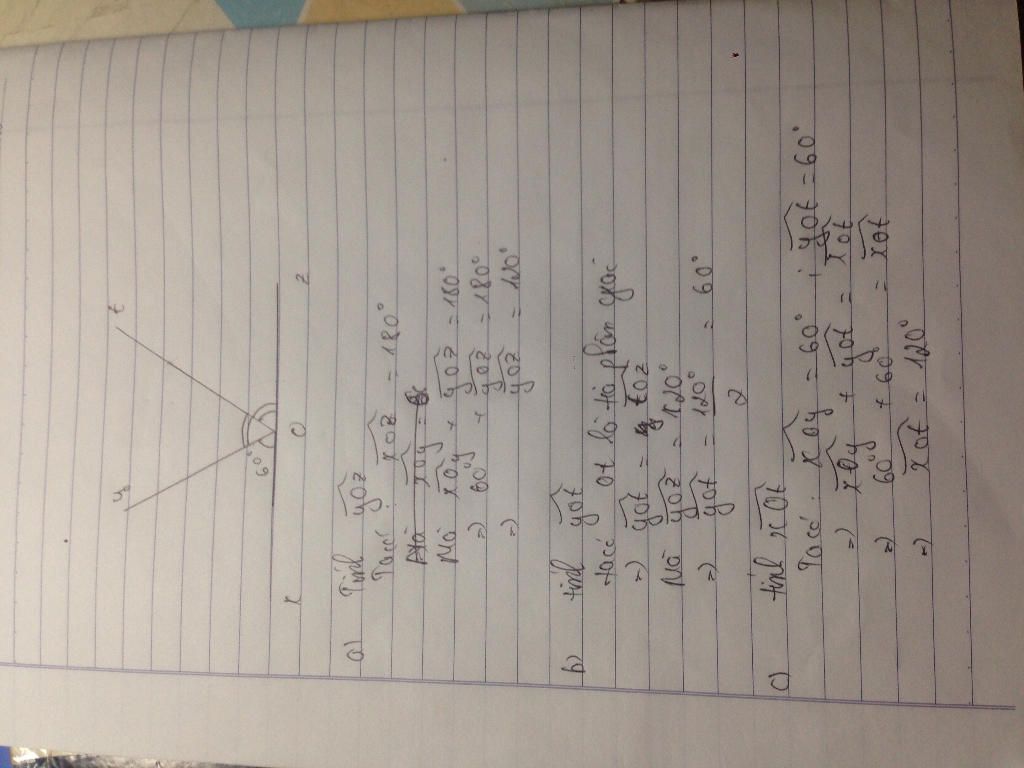 y t
60°
x O z
a) Tính yOz
Ta có: xOz = 180°
Mà xOy =
Mà xOy + yOz = 180°
=) 60° + yOz = 180°
=) yOz = 120°
b) tính yOt
ta có Ot là tia phân giác
=) yOt = tOz
Mà yOz = 120°
=) yOt = 120° / 2 = 60°
c) tính xOt
Ta có: xOy = 60° ; yOt = 60°
=) xOy + yOt = xOt
=) 60° + 60° = xOt
=) xOt = 120°